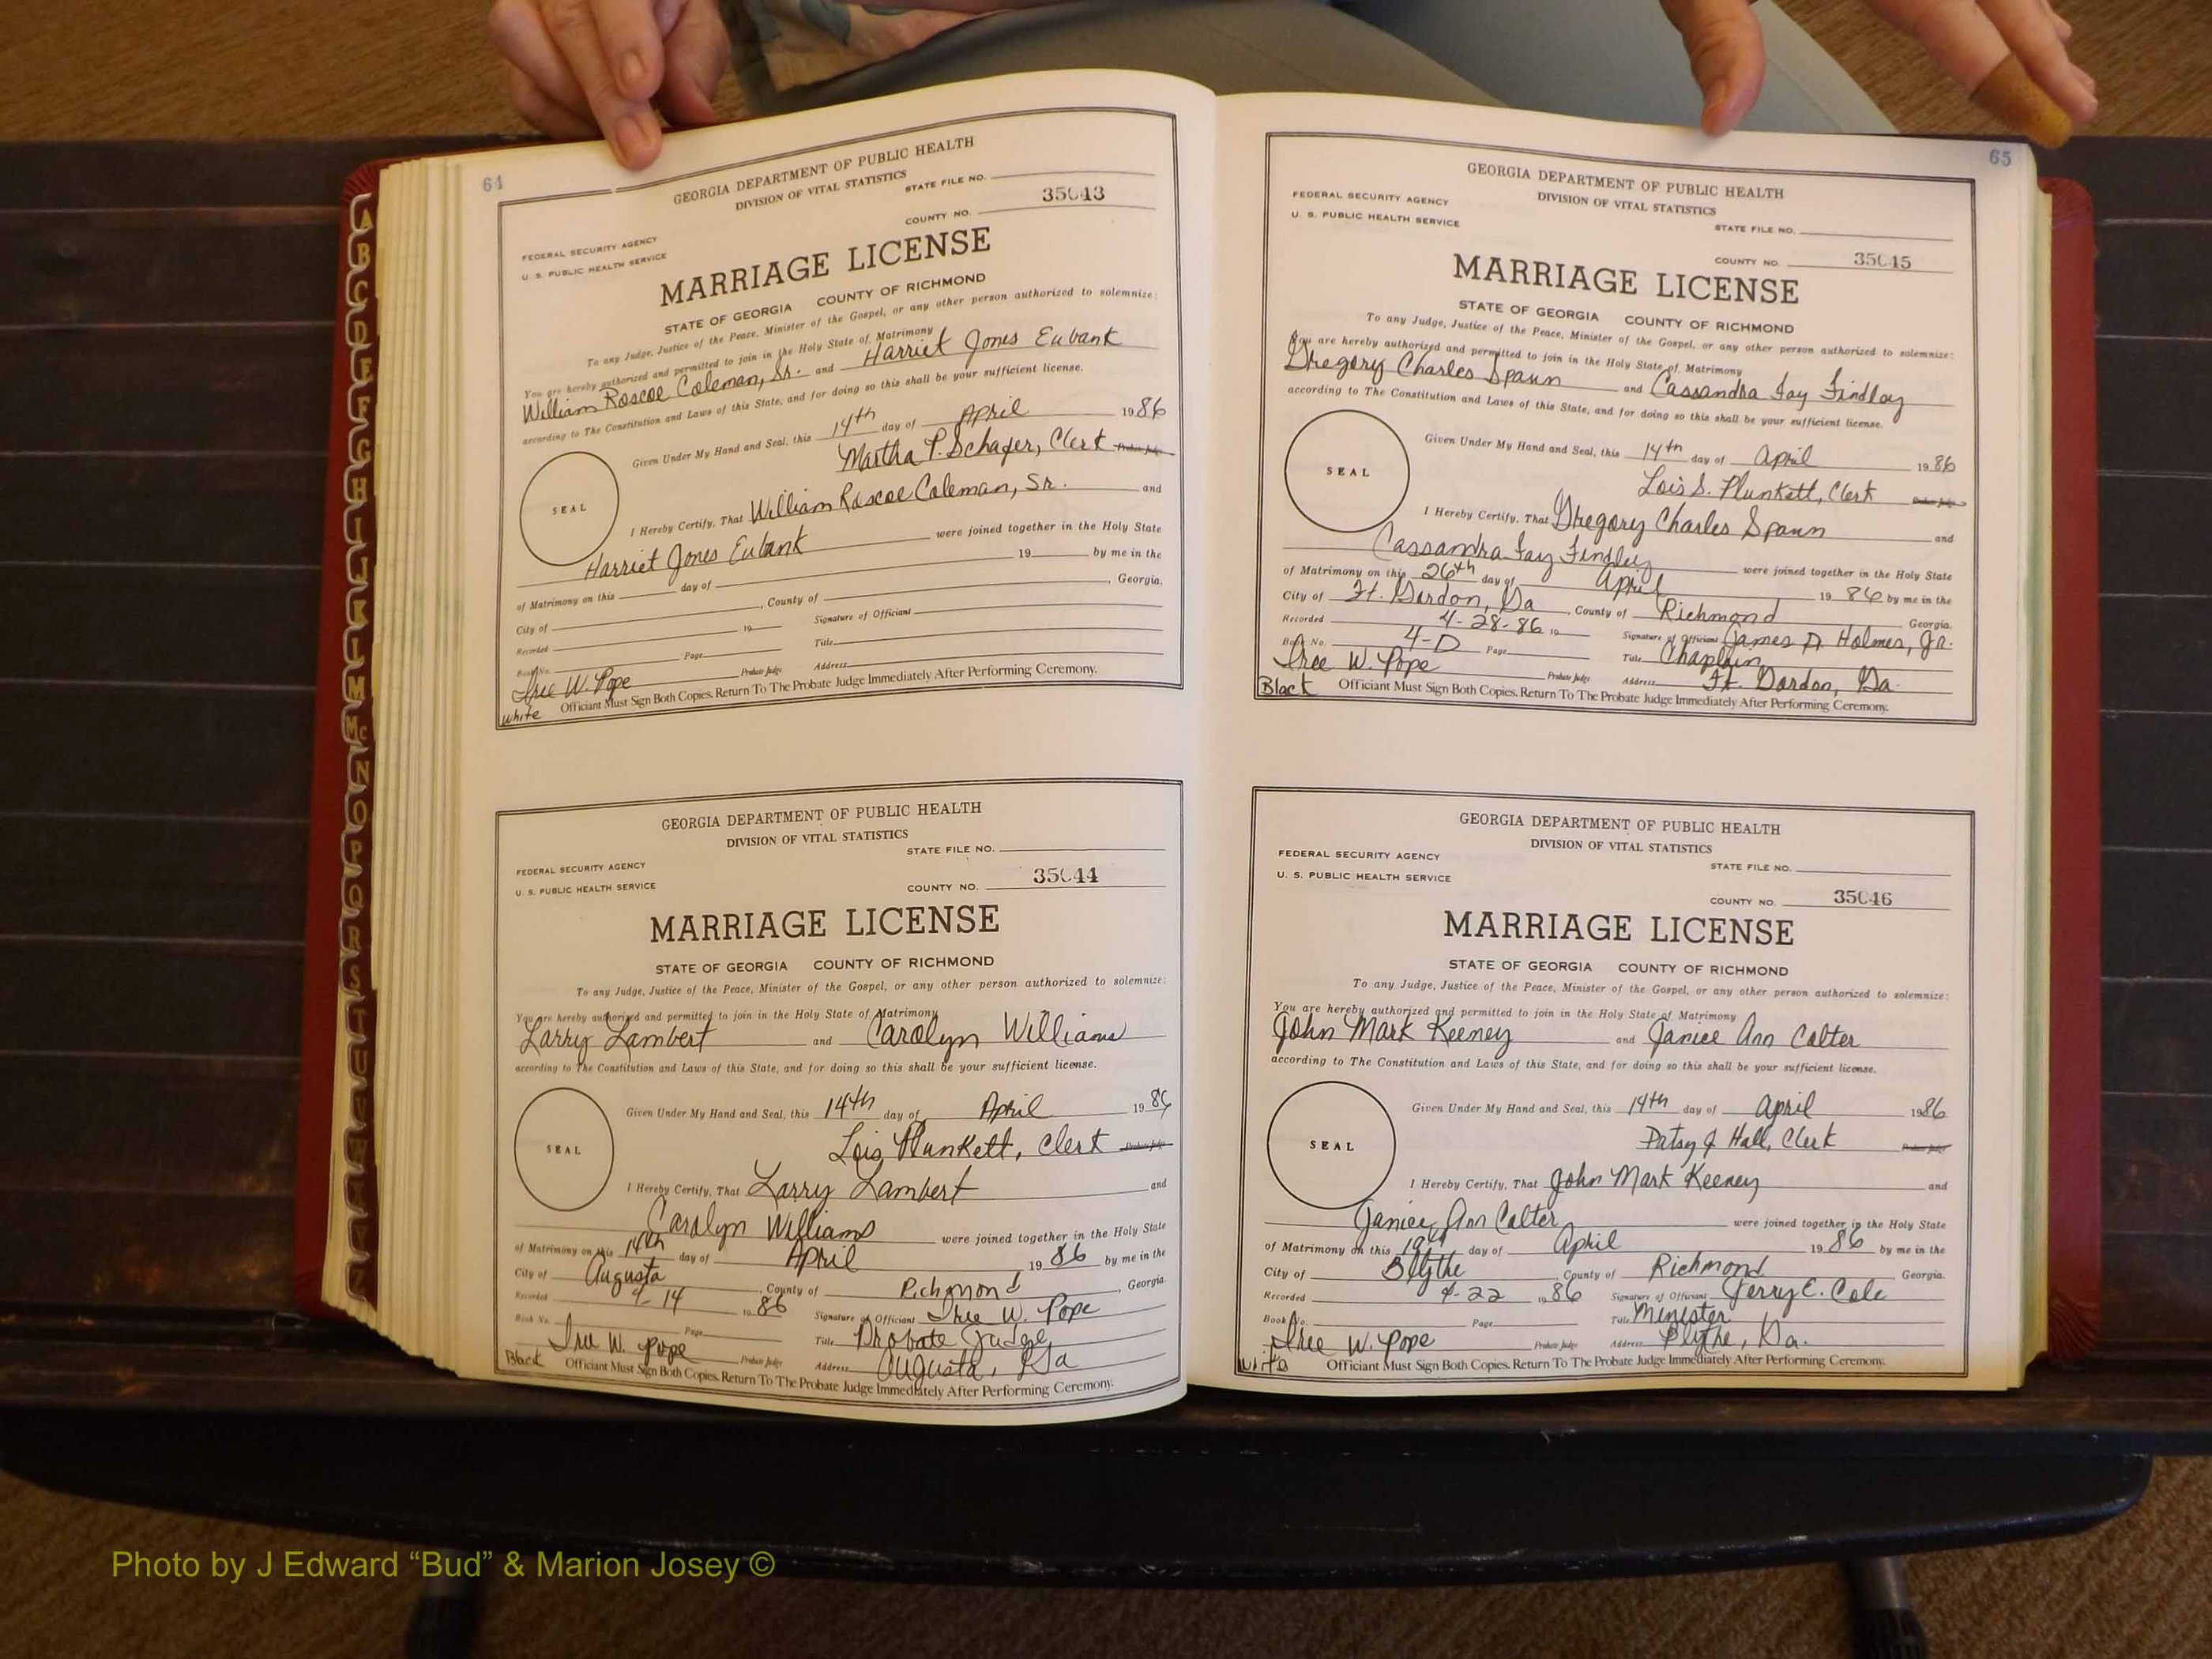 64
GEORGIA DEPARTMENT OF PUBLIC HEALTH
DIVISION OF VITAL STATISTICS
STATE FILE NO.
COUNTY NO. 35043
FEDERAL SECURITY AGENCY
U. S. PUBLIC HEALTH SERVICE
MARRIAGE LICENSE
STATE OF GEORGIA COUNTY OF RICHMOND
To any Judge, Justice of the Peace, Minister of the Gospel, or any other person authorized to solemnize:
You are hereby authorized and permitted to join in the Holy State of Matrimony
William Roscoe Coleman, Sr. and Harriet Jones Eubank
according to The Constitution and Laws of this State, and for doing so this shall be your sufficient license.
Given Under My Hand and Seal, this 14th day of April 1986
Martha P. Schafer, Clerk Probate Judge
SEAL
I Hereby Certify, That William Roscoe Coleman, Sr. and
Harriet Jones Eubank were joined together in the Holy State
of Matrimony on this day of 19 by me in the
City of , County of , Georgia.
Recorded 19 Signature of Officiant
Book No. Page Title
W. Pope Probate Judge Address
White Officiant Must Sign Both Copies. Return To The Probate Judge Immediately After Performing Ceremony.
GEORGIA DEPARTMENT OF PUBLIC HEALTH
DIVISION OF VITAL STATISTICS
STATE FILE NO.
FEDERAL SECURITY AGENCY
U. S. PUBLIC HEALTH SERVICE
COUNTY NO. 35044
MARRIAGE LICENSE
STATE OF GEORGIA COUNTY OF RICHMOND
To any Judge, Justice of the Peace, Minister of the Gospel, or any other person authorized to solemnize:
You are hereby authorized and permitted to join in the Holy State of Matrimony
Larry Lambert and Carolyn Williams
according to The Constitution and Laws of this State, and for doing so this shall be your sufficient license.
Given Under My Hand and Seal, this 14th day of April 1986
Lois Plunkett, Clerk Probate Judge
SEAL
I Hereby Certify, That Larry Lambert and
Carolyn Williams were joined together in the Holy State
of Matrimony on this 14th day of April 1986 by me in the
City of Augusta, County of Richmond, Georgia.
Recorded 4-14 1986 Signature of Officiant W. Pope
Book No. Page Title Probate Judge
W. Pope Probate Judge Address Augusta, Ga
Black Officiant Must Sign Both Copies. Return To The Probate Judge Immediately After Performing Ceremony.
65
GEORGIA DEPARTMENT OF PUBLIC HEALTH
DIVISION OF VITAL STATISTICS
FEDERAL SECURITY AGENCY
U. S. PUBLIC HEALTH SERVICE
STATE FILE NO.
COUNTY NO. 35045
MARRIAGE LICENSE
STATE OF GEORGIA COUNTY OF RICHMOND
To any Judge, Justice of the Peace, Minister of the Gospel, or any other person authorized to solemnize:
You are hereby authorized and permitted to join in the Holy State of Matrimony
Gregory Charles Spann and Cassandra Fay Findley
according to The Constitution and Laws of this State, and for doing so this shall be your sufficient license.
Given Under My Hand and Seal, this 14th day of April 1986
Lois S. Plunkett, Clerk Probate Judge
SEAL
I Hereby Certify, That Gregory Charles Spann and
Cassandra Fay Findley were joined together in the Holy State
of Matrimony on this 26th day of April 1986 by me in the
City of Ft. Gordon, Ga, County of Richmond Georgia.
Recorded 4-28-86 19 Signature of Officiant James D. Holmes, Jr.
Book No. 4-D Page Title Chaplain
W. Pope Probate Judge Address Ft. Gordon, Ga.
Black Officiant Must Sign Both Copies. Return To The Probate Judge Immediately After Performing Ceremony.
GEORGIA DEPARTMENT OF PUBLIC HEALTH
DIVISION OF VITAL STATISTICS
FEDERAL SECURITY AGENCY
U. S. PUBLIC HEALTH SERVICE
STATE FILE NO.
COUNTY NO. 35046
MARRIAGE LICENSE
STATE OF GEORGIA COUNTY OF RICHMOND
To any Judge, Justice of the Peace, Minister of the Gospel, or any other person authorized to solemnize:
You are hereby authorized and permitted to join in the Holy State of Matrimony
John Mark Keeney and Janice Ann Colter
according to The Constitution and Laws of this State, and for doing so this shall be your sufficient license.
Given Under My Hand and Seal, this 14th day of April 1986
Patsy J Hall, Clerk Probate Judge
SEAL
I Hereby Certify, That John Mark Keeney and
Janice Ann Colter were joined together in the Holy State
of Matrimony on this 19th day of April 1986 by me in the
City of Blythe, County of Richmond, Georgia.
Recorded 4-22 1986 Signature of Officiant Jerry C. Cole
Book No. Page Title Minister
W. Pope Probate Judge Address Blythe, Ga.
White Officiant Must Sign Both Copies. Return To The Probate Judge Immediately After Performing Ceremony.
A
B
C
D
E
F
G
H
I
J
K
L
M
Mc
N
O
P
Q
R
S
T
U
V
W
X
Y
Z
Photo by J Edward “Bud” & Marion Josey ©